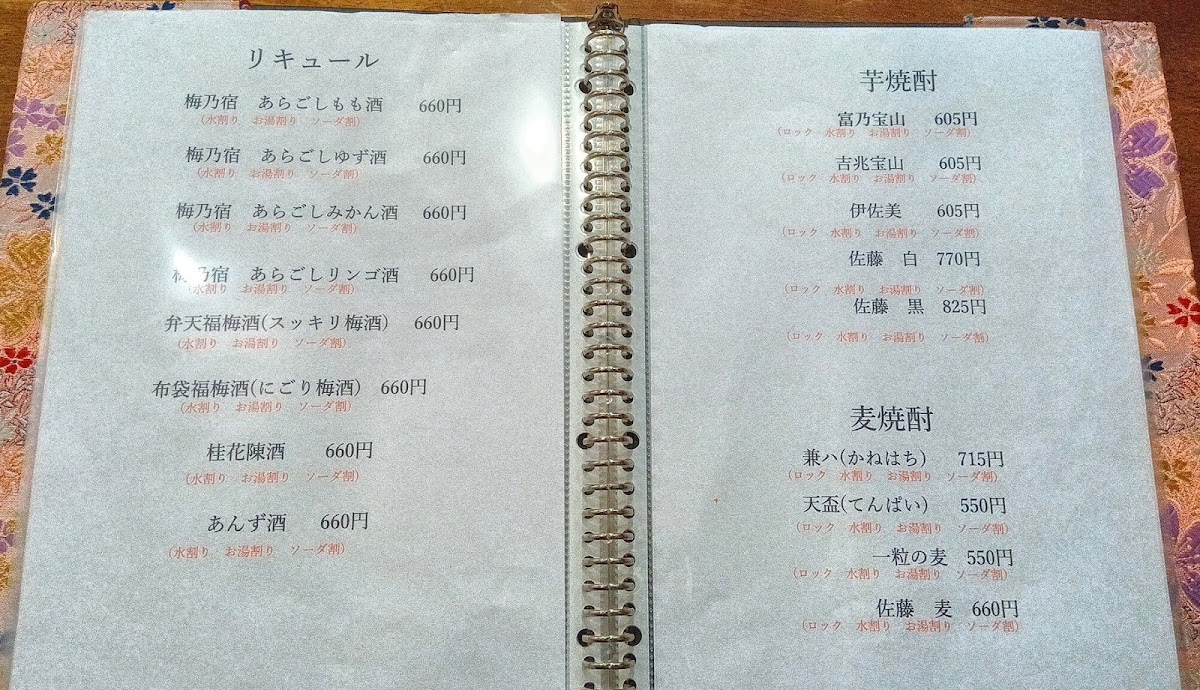 リキュール
梅乃宿　あらごしもも酒　660円
(水割り　お湯割り　ソーダ割)
梅乃宿　あらごしゆず酒　660円
(水割り　お湯割り　ソーダ割)
梅乃宿　あらごしみかん酒　660円
(水割り　お湯割り　ソーダ割)
梅乃宿　あらごしリンゴ酒　660円
(水割り　お湯割り　ソーダ割)
弁天福梅酒(スッキリ梅酒)　660円
(水割り　お湯割り　ソーダ割)
布袋福梅酒(にごり梅酒)　660円
(水割り　お湯割り　ソーダ割)
桂花陳酒　660円
(水割り　お湯割り　ソーダ割)
あんず酒　660円
(水割り　お湯割り　ソーダ割)
芋焼酎
富乃宝山　605円
(ロック　水割り　お湯割り　ソーダ割)
吉兆宝山　605円
(ロック　水割り　お湯割り　ソーダ割)
伊佐美　605円
(ロック　水割り　お湯割り　ソーダ割)
佐藤　白　770円
(ロック　水割り　お湯割り　ソーダ割)
佐藤　黒　825円
(ロック　水割り　お湯割り　ソーダ割)
麦焼酎
兼ハ(かねはち)　715円
(ロック　水割り　お湯割り　ソーダ割)
天盃(てんぱい)　550円
(ロック　水割り　お湯割り　ソーダ割)
一粒の麦　550円
(ロック　水割り　お湯割り　ソーダ割)
佐藤　麦　660円
(ロック　水割り　お湯割り　ソーダ割)